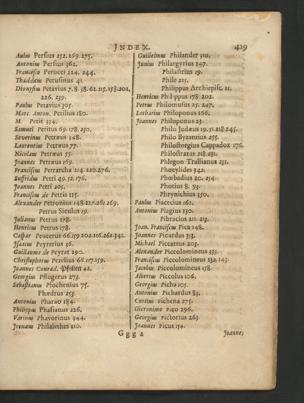 INDEX. 419
Aulus Persius 252. 269. 275.
Antonius Persius 362.
Francesco Perucci 224. 244.
Thaddæus Perusinus 41.
Dionysius Petavius 7. 8. 38. 62. 115. 158. 201,
226. 239.
Paulus Petavius 305.
Marc. Anton. Petilius 180.
M. Petit 334.
Samuel Petitus 69. 178. 250.
Severinus Petræus 148.
Laurentius Petræus 77.
Nicolaus Petræus 55.
Joannes Petræus 169.
Franciscus Petrarcha 214. 220. 276.
Ægidius Petri 49. 52. 176.
Joannes Petri 205.
Franciscus de Petris 115.
Alexander Petronius 148. 217. 261. 269.
Petrus Siculus 19.
Julianus Petrus 178.
Henricus Petrus 178.
Caspar Peucerus 66. 159. 202. 216. 262. 341.
Isaacus Peyreirus 36.
Guillaume de Peyrat 290.
Christophorus Pezelius 60. 117. 159.
Joannes Conrad. Pfeilen 42.
Georgius Pflugerus 273.
Sebastianus Pfochenius 75.
Phædrus 253.
Antonius Pharao 184.
Philippus Phasianus 226.
Varinus Phavorinus 344.
Irenæus Philalethes 110.
Guilielmus Philander 311.
Junius Philargyrius 247.
Philastrius 19.
Phile 215.
Philippus Archiepisc. 21.
Henricus Philippus 178. 202.
Petrus Philomusus 25. 247.
Lotharius Philoponus 166.
Joannes Philoponus 23.
Philo Judæus 19. 51. 218. 245.
Philo Byzantius 255.
Philostorgius Cappadox 176.
Philostratus 218. 231.
Phlegon Trallianus 231.
Phocylides 342.
Phœbadius 20. 254.
Photius 8. 93.
Phrynichius 350.
Paulus Piacecius 162.
Antonius Piagius 130.
Pibracius 211. 213.
Joan. Franciscus Pica 248.
Joannes Picardus 313.
Michael Piccartus 203.
Alexander Piccolomineus 133.
Franciscus Piccolomineus 132. 143.
Jacobus Piccolomineus 178.
Albertus Piccolus 106.
Georgius Picha 105.
Antonius Pichardus 83.
Curtius Pichena 275.
Gieronimo Pico 296.
Georgius Pictorius 263.
Joannes Picus 134.
Ggg 2 Joannes